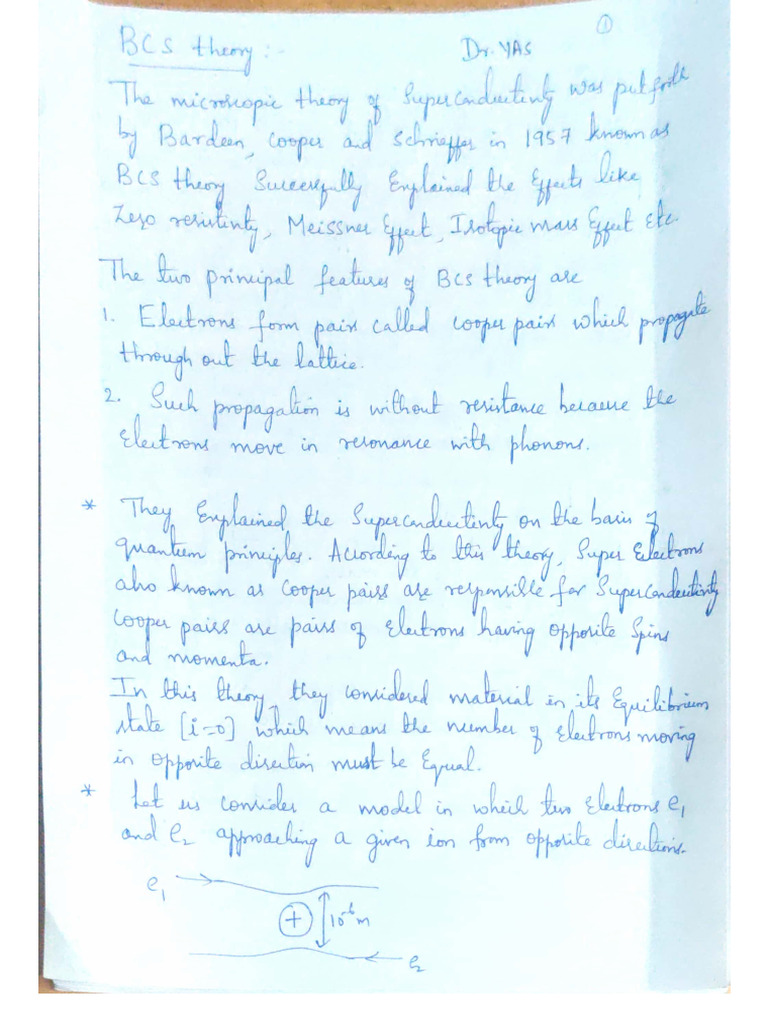 1
BCS theory :-
Dr. YAS
The microscopic theory of Superconductivity was put forth
by Bardeen, Cooper and Schrieffer in 1957 known as
BCS theory Successfully Explained the Effects like
Zero resistivity, Meissner Effect, Isotopic mass Effect Etc.
The two principal features of BCS theory are
1. Electrons form pairs called cooper pairs which propagate
through out the lattice.
2. Such propagation is without resistance because the
Electrons move in resonance with phonons.
* They Explained the Superconductivity on the basis of
quantum principles. According to this theory, Super Electrons
also known as Cooper pairs are responsible for Superconductivity
Cooper pairs are pairs of Electrons having opposite Spins
and momenta.
In this theory, they considered material in its Equilibrium
state [i=0] which means the number of Electrons moving
in opposite direction must be Equal.
* Let us consider a model in which two Electrons e₁
and e₂ approaching a given ion from opposite directions.
e₁
+
10⁻⁶m
e₂